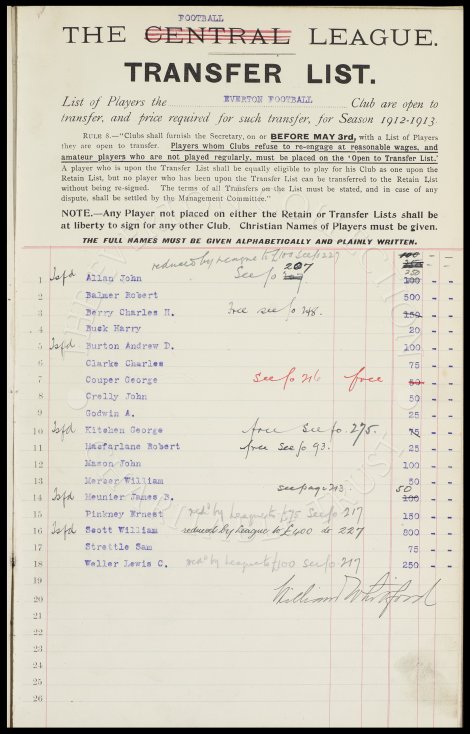 FOOTBALL
THE CENTRAL LEAGUE.
TRANSFER LIST.
List of Players the EVERTON FOOTBALL Club are open to
transfer, and price required for such transfer, for Season 1912-1913
RULE 8.—"Clubs shall furnish the Secretary, on or BEFORE MAY 3rd, with a List of Players
they are open to transfer. Players whom Clubs refuse to re-engage at reasonable wages, and
amateur players who are not played regularly, must be placed on the 'Open to Transfer List.'
A player who is upon the Transfer List shall be equally eligible to play for his Club as one upon the
Retain List, but no player who has been upon the Transfer List can be transferred to the Retain List
without being re-signed. The terms of all Transfers on the List must be stated, and in case of any
dispute, shall be settled by the Management Committee."
NOTE.—Any Player not placed on either the Retain or Transfer Lists shall be
at liberty to sign for any other Club. Christian Names of Players must be given.
THE FULL NAMES MUST BE GIVEN ALPHABETICALLY AND PLAINLY WRITTEN.
reduced by League to £100 See fo 227
1 Isfd Allan John See fo 207 100 - -
2 Balmer Robert 500 - -
3 Berry Charles H. Free see fo 248. 150 - -
4 Buck Harry 20 - -
5 Isfd Burton Andrew D. 100 - -
6 Clarke Charles 75 - -
7 Couper George See fo 216 free 50 - -
8 Crelly John 50 - -
9 Godwin A. 25 - -
10 Isfd Kitchen George free See fo 275. 75 - -
11 Macfarlane Robert free see fo 93. 25 - -
12 Mason John 100 - -
13 Mercer William 50 - -
14 Isfd Meunier James B. see page 213. 50 100 - -
15 Pinkney Ernest redd by League to £75 See fo 217 150 - -
16 Isfd Scott William reduced by League to £400 fo 227 800 - -
17 Strettle Sam 75 - -
18 Weller Lewis C. redd by League to £100 See fo 217 250 - -
19
William Whitford
20
21
22
23
24
25
26